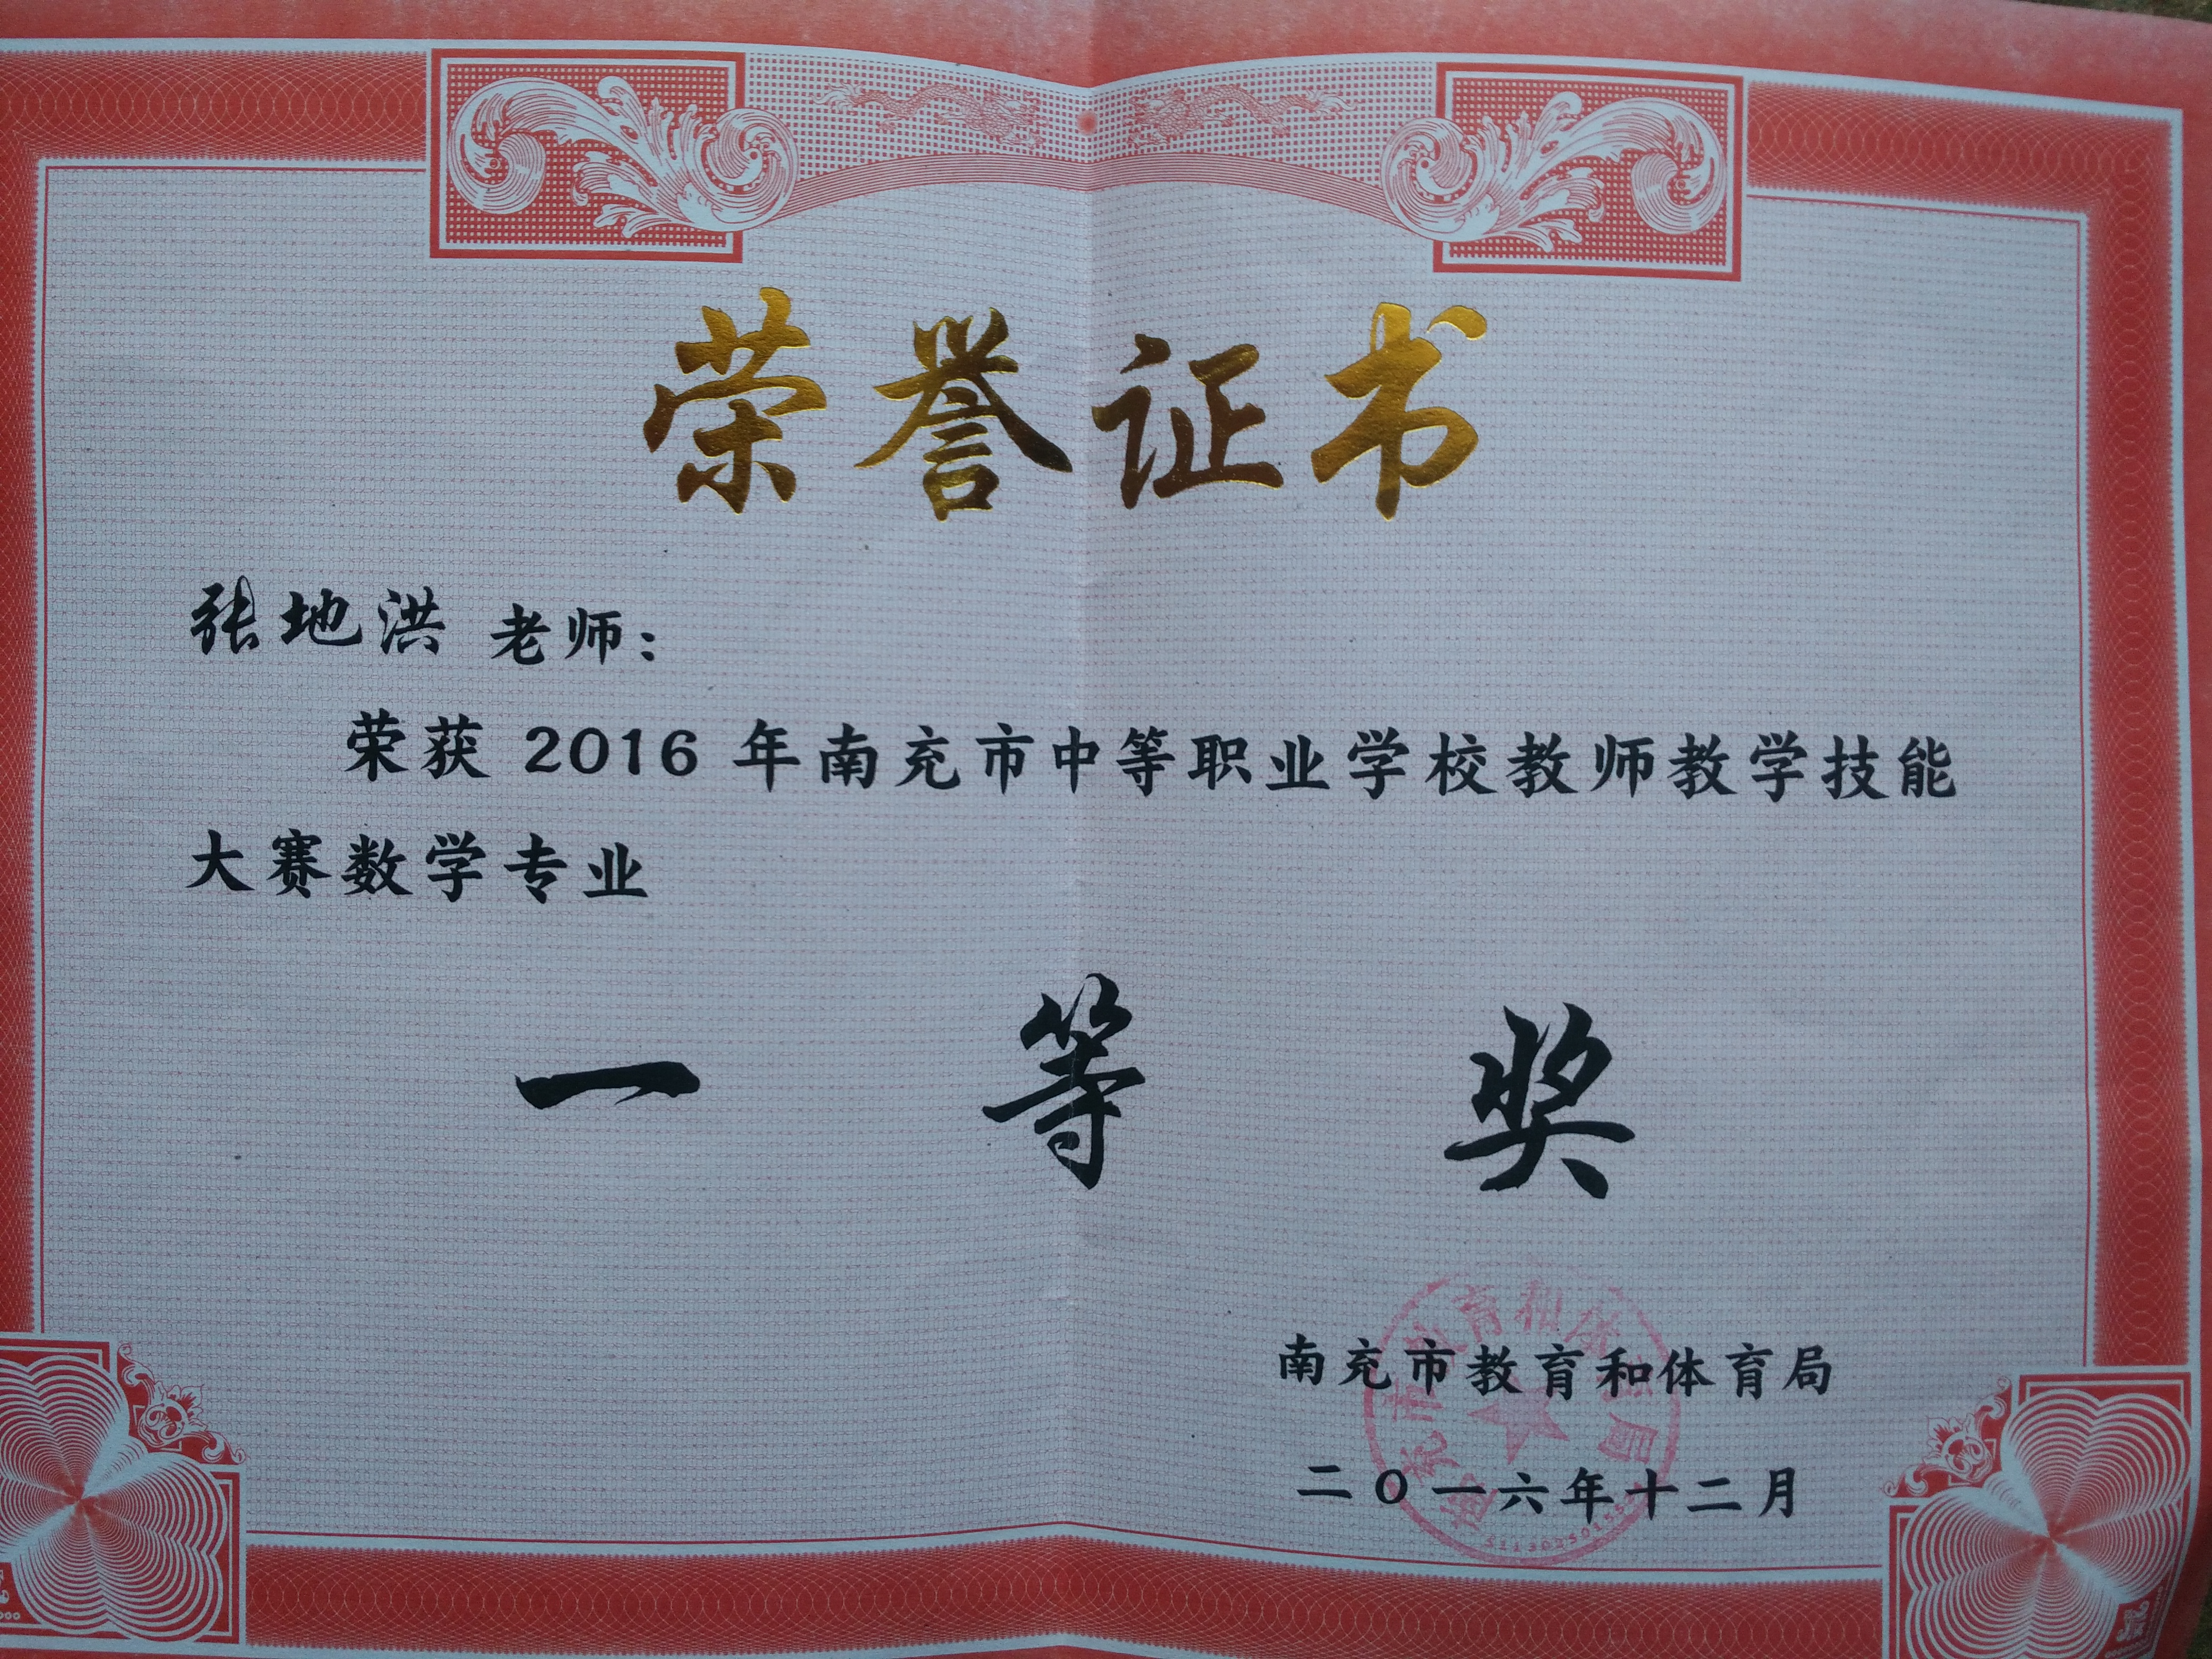 荣誉证书
张地洪 老师：
荣获 2016 年南充市中等职业学校教师教学技能
大赛数学专业
一等奖
南充市教育和体育局
二〇一六年十二月
南充市教育和体育局